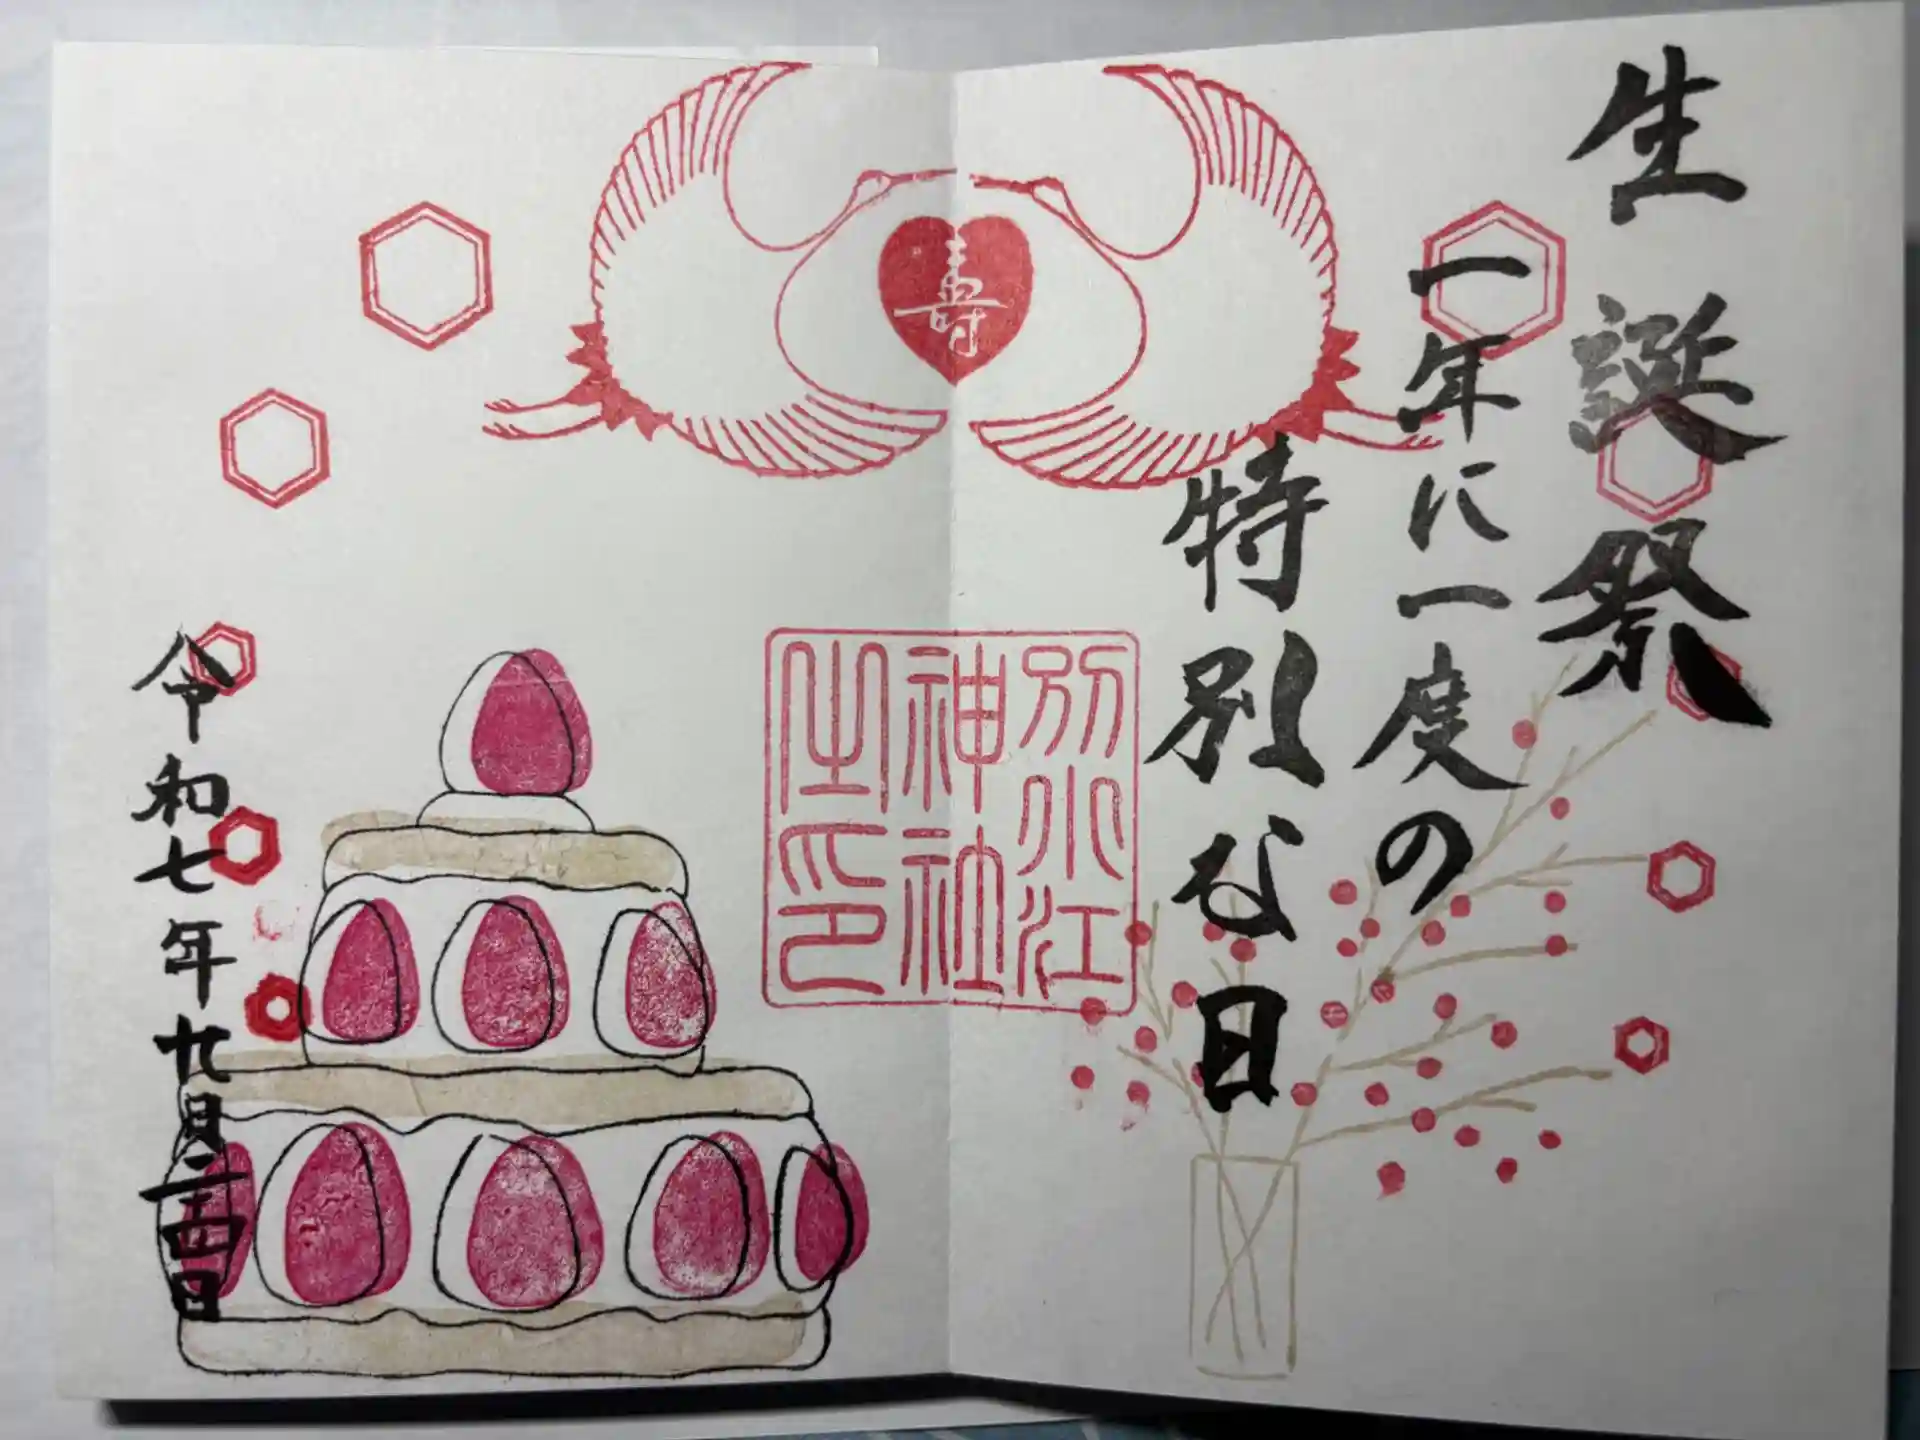 生誕祭
一年に一度の
特別な日
寿
別小江
神社
之印
令和七年九月二十四日